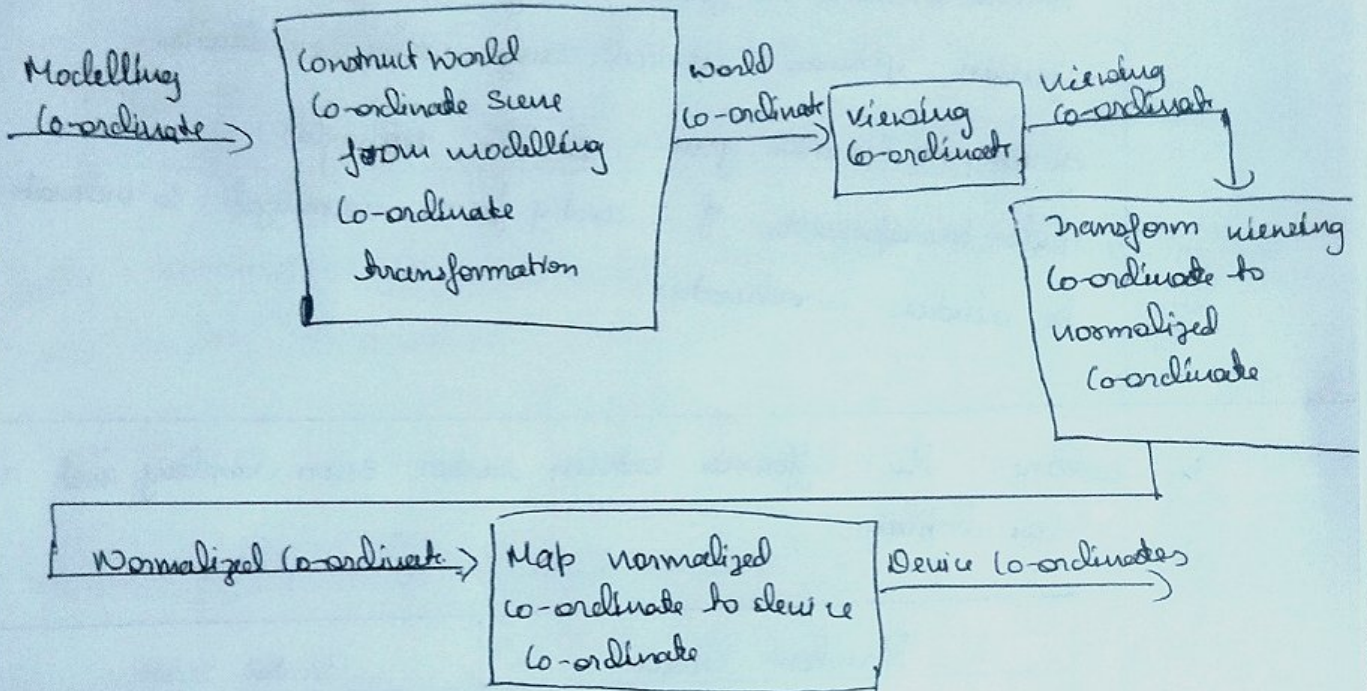 Modelling
Co-ordinate
Construct world
Co-ordinate Scene
from modelling
Co-ordinate
transformation
World
Co-ordinate
Viewing
Co-ordinate
Viewing
Co-ordinate
Transform viewing
Co-ordinate to
normalized
Co-ordinate
Normalized Co-ordinate
Map normalized
Co-ordinate to device
Co-ordinate
Device Co-ordinates